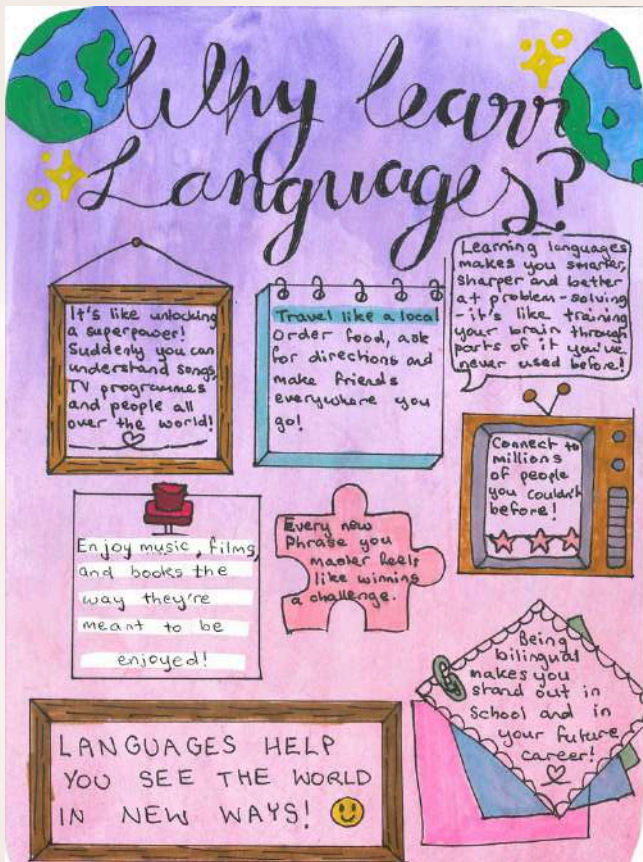 Why learn
Languages?
It's like unlocking
a superpower!
Suddenly you can
understand songs,
TV programmes
and people all
over the world!
Travel like a local
Order food, ask
for directions and
make friends
everywhere you
go!
Learning languages
makes you smarter,
sharper and better
at problem-solving
- it's like training
your brain through
parts of it you've
never used before!
Connect to
millions
of people
you couldn't
before!
Enjoy music, films,
and books the
way they're
meant to be
enjoyed!
Every new
Phrase you
master feels
like winning
a challenge.
Being
bilingual
makes you
stand out in
School and in
your future
career!
LANGUAGES HELP
YOU SEE THE WORLD
IN NEW WAYS!